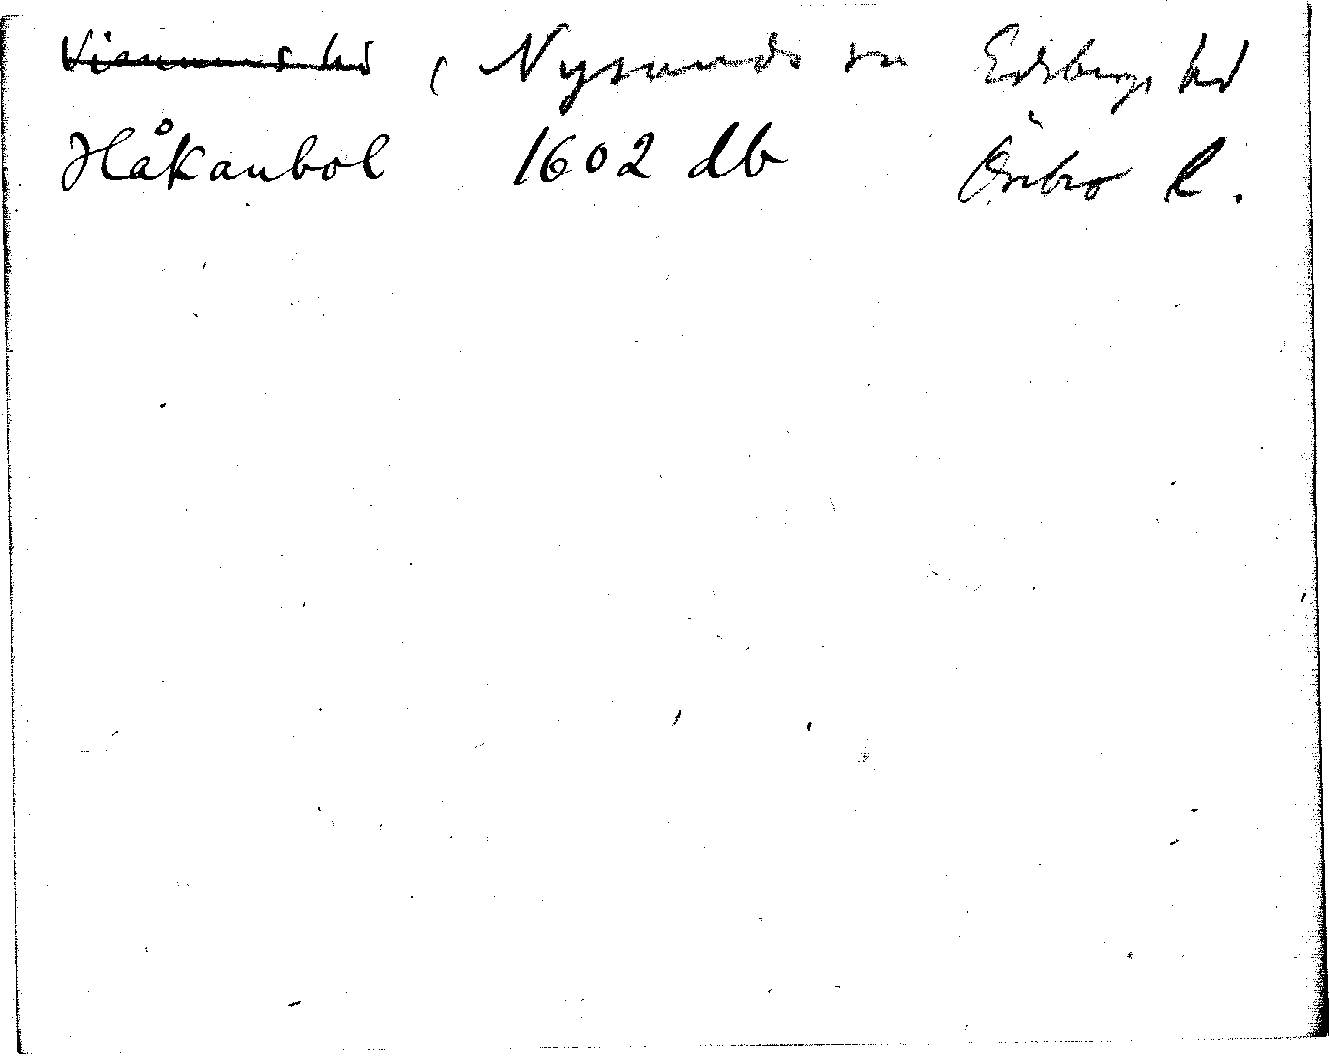 Visnums hd ( Nysunds sn Edsbergs hd
Håkanbol 1602 db Örebro l.